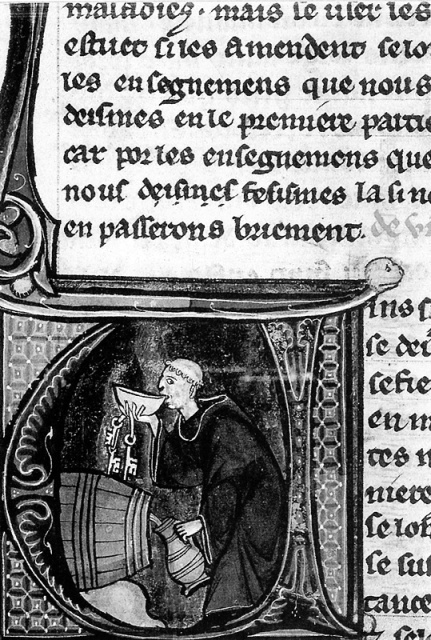 maladies. mais se user les
estuet si les amendent selo
les ensegnemens que nous
desimes en le premiere partie
car por les ensegnemens que
nous desimes fesismes la si
en passerons briement. de vi
ins
se de
sefie
en m
tes n
niere
se lo
se su
tance